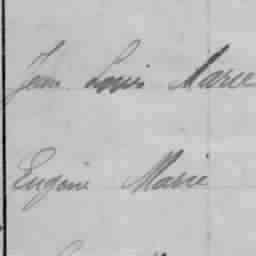 Jean Louis Marie
Eugène Marie